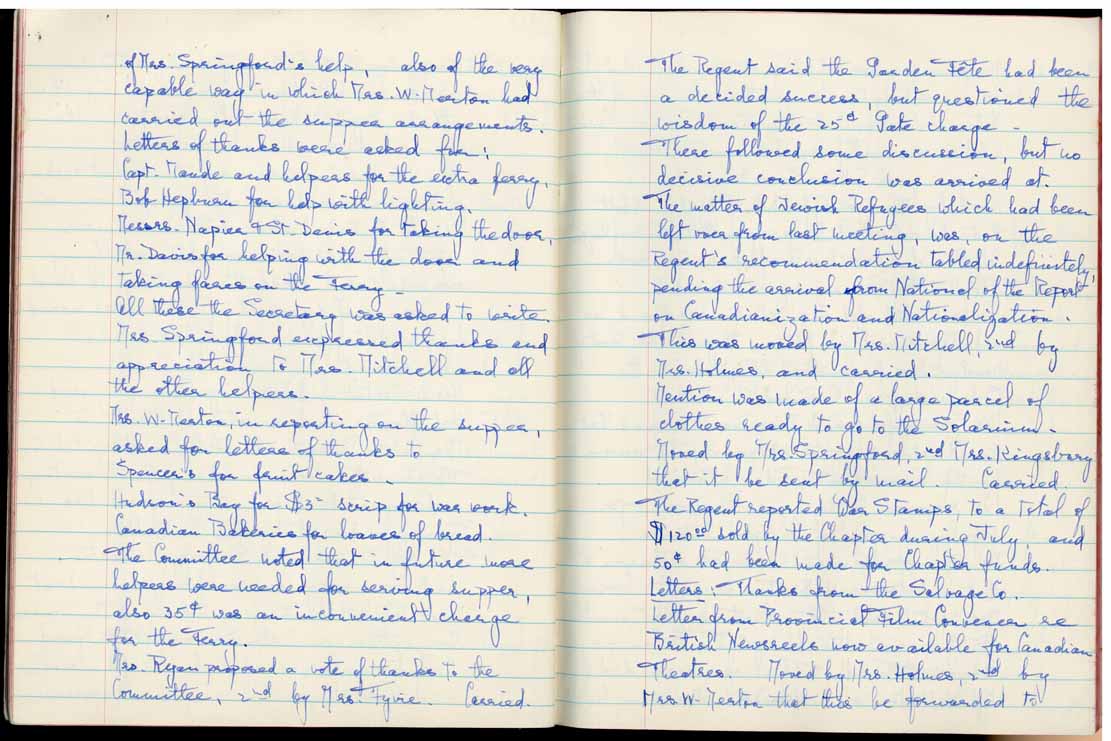 of Mrs. Springford's help, also of the very
capable way in which Mrs. W-Merton had
carried out the supper arrangements.
Letters of thanks were asked for:
Capt. Maude and helpers for the extra ferry,
Bob Hepburn for help with lighting.
Messrs. Napier & St. Denis for taking the door,
Mr. Davis for helping with the door and
taking fares on the Ferry -
All these the Secretary was asked to write.
Mrs. Springford expressed thanks and
appreciation to Mrs. Mitchell and all
the other helpers.
Mrs. W-Merton, in reporting on the supper,
asked for letters of thanks to
Spencer's for fruit cakes -
Hudson's Bay for $3- scrip for war work.
Canadian Bakeries for loaves of bread.
The Committee noted that in future more
helpers were needed for serving supper,
also 35¢ was an inconvenient charge
for the Ferry.
Mrs. Ryan proposed a vote of thanks to the
Committee, 2nd by Mrs. Fyvie. Carried.
The Regent said the Garden Fête had been
a decided success, but questioned the
wisdom of the 25¢ Gate charge -
There followed some discussion, but no
decisive conclusion was arrived at.
The matter of Jewish Refugees which had been
left over from last meeting, was, on the
Regent's recommendation tabled indefinitely,
pending the arrival from National of the Report
on Canadianization and Nationalization.
This was moved by Mrs. Mitchell, 2nd by
Mrs. Holmes, and carried.
Mention was made of a large parcel of
clothes ready to go to the Solarium -
Moved by Mrs. Springford, 2nd Mrs. Kingsbury
that it be sent by mail. Carried.
The Regent reported War Stamps, to a total of
$120.00 sold by the Chapter during July, and
50¢ had been made for Chapter funds.
Letters: Thanks from the Salvage Co.
Letter from Provincial Film Convener re
British Newsreels now available for Canadian
Theatres. Moved by Mrs. Holmes, 2nd by
Mrs. W-Merton that this be forwarded to